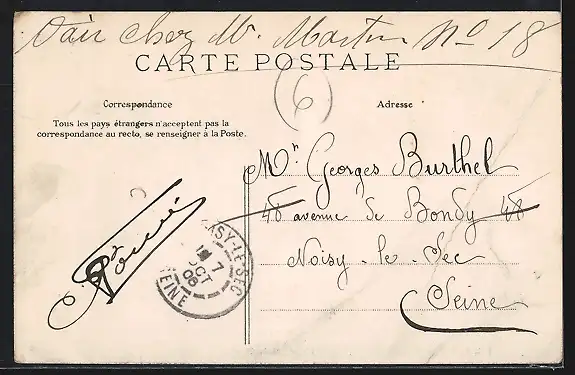 Voir chez Mr. Martin No 18
CARTE POSTALE
6
Correspondance
Tous les pays étrangers n'acceptent pas la
correspondance au recto, se renseigner à la Poste.
Adresse
Mr Georges Burthel
48 avenue de Bondy 48
Noisy-le-Sec
Seine
NOISY-LE-SEC
7
OCT
06
SEINE